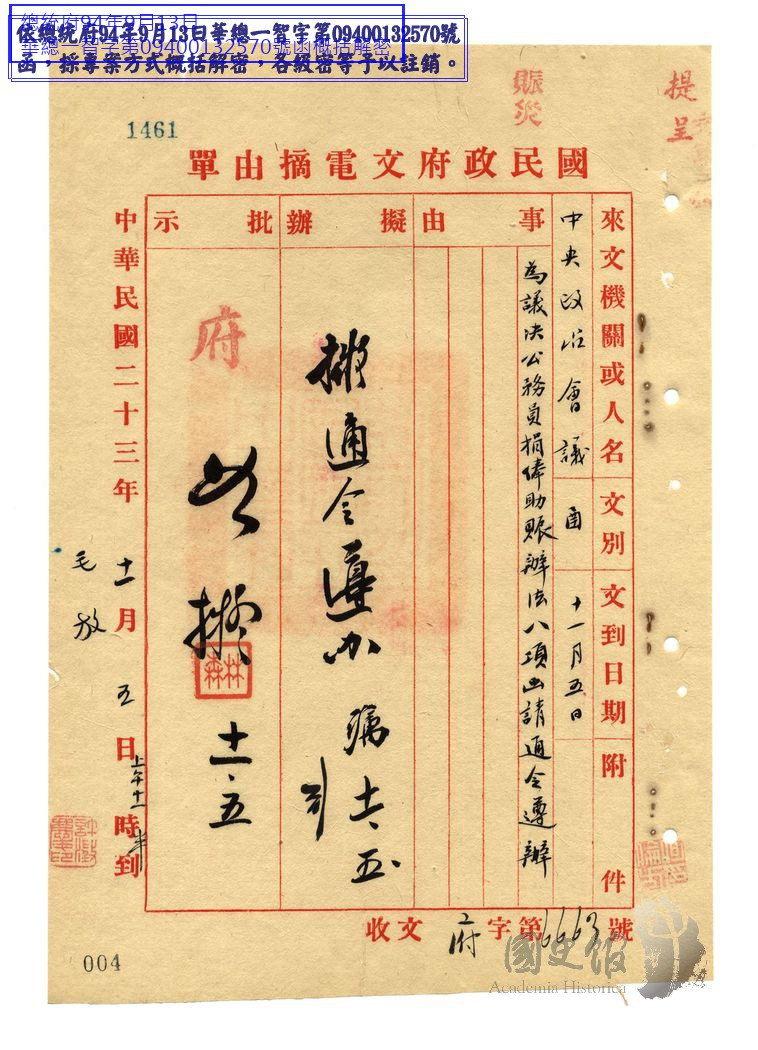 總統府94年9月13日
華總一智字第09400132570號函概括解密
依總統府94年9月13日華總一智字第09400132570號
函，採專案方式概括解密，各級密等予以註銷。
提呈
賑災
1461
國民政府文電摘由單
來文機關或人名
中央政治會議
文別
函
文到日期
十一月五日
附件
事由
為議決公務員捐俸助賑辦法八項函請通令遵辦
擬辦
擬通令遵办
十一、五
批示
府
如擬
林森
十一、五
中華民國二十三年十一月五日上午十一時半到
收文府字第6663號
004
國史館
Academia Historica